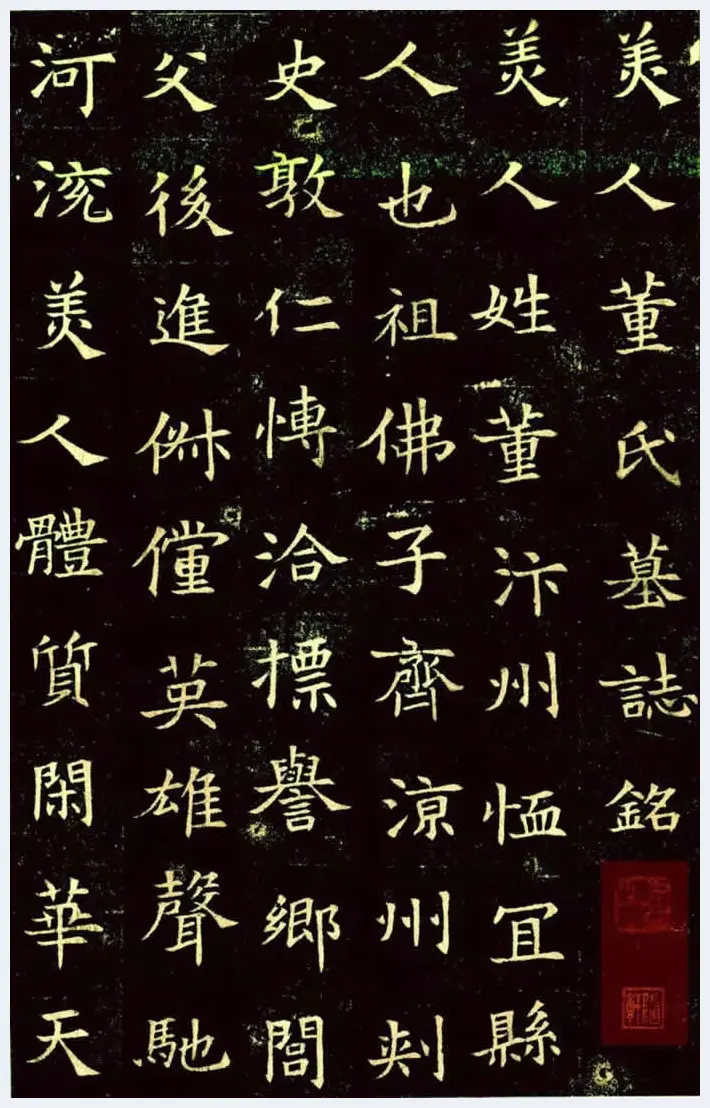 美人董氏墓誌銘
美人姓董汴州恤冝縣
人也祖佛子齊涼州刺
史敦仁慱洽摽譽鄉閭
父後進俶儻英雄聲馳
河流美人體質閑華天